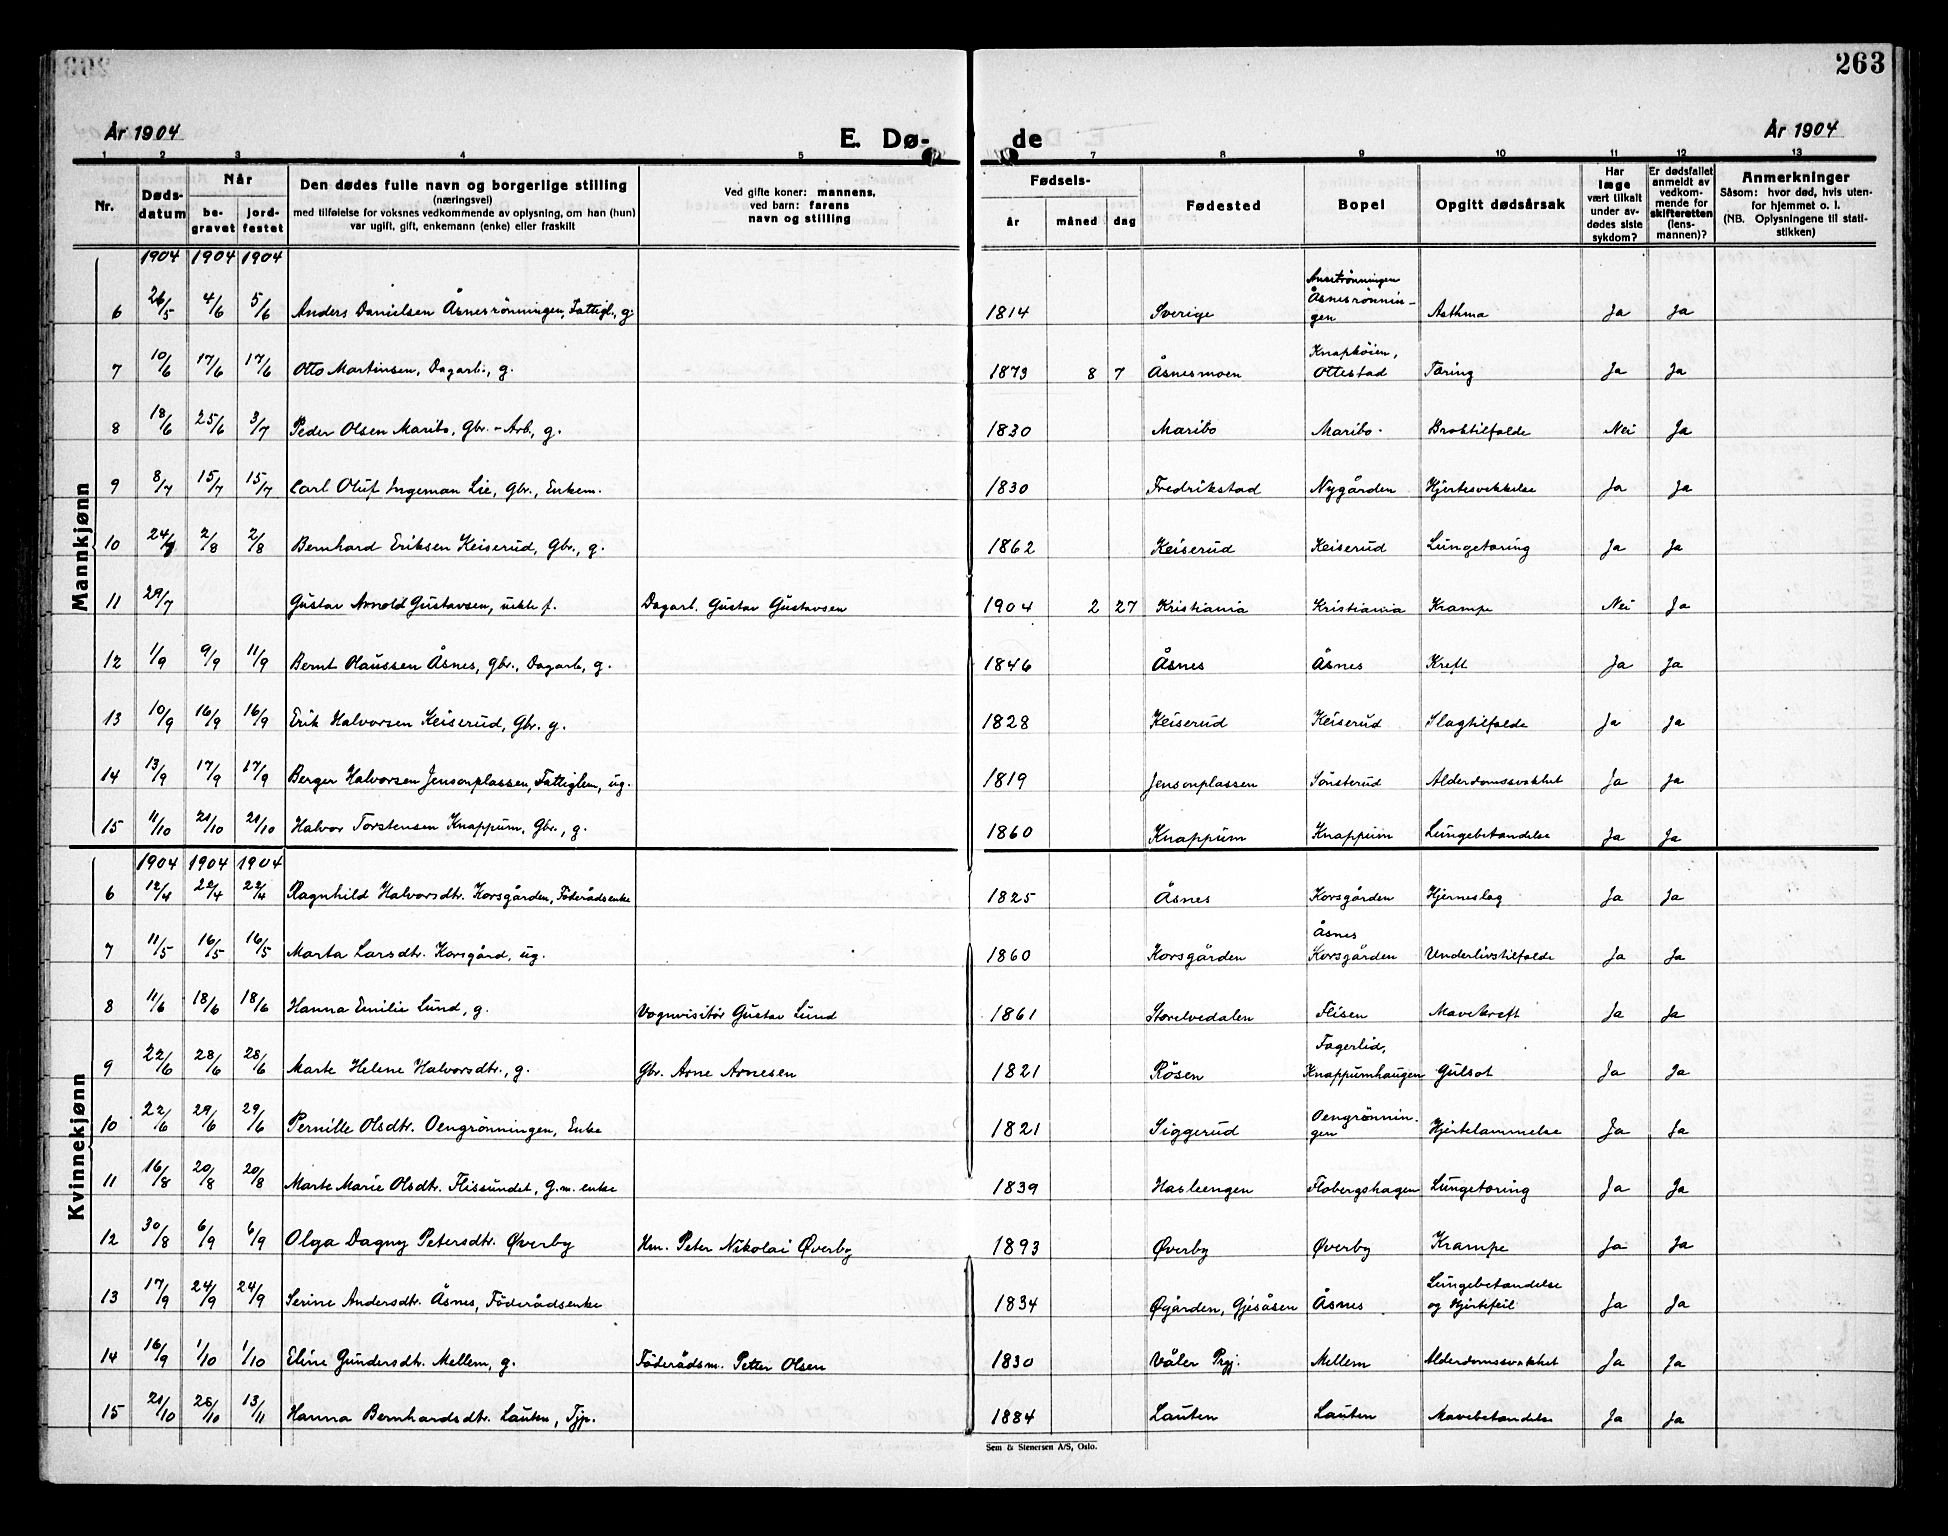 263
År 1904
E. Dø-
de
År 1904
1 2 3 4 5 7 8 9 10 11 12 13
Nr.
Døds-
datum
Når
be-
gravet
jord-
festet
Den dødes fulle navn og borgerlige stilling
(næringsvei)
med tilføielse for voksnes vedkommende av oplysning, om han (hun)
var ugift, gift, enkemann (enke) eller fraskilt
Ved gifte koner: mannens,
ved barn: farens
navn og stilling
Fødsels-
år måned dag
Fødested
Bopel
Opgitt dødsårsak
Har
læge
vært tilkalt
under av-
dødes siste
sykdom?
Er dødsfallet
anmeldt av
vedkom-
mende for
skifteretten
(lens-
mannen)?
Anmerkninger
Såsom: hvor død, hvis uten-
for hjemmet o. l.
(NB. Oplysningene til stati-
stikken)
Mannkjønn
1904 1904 1904
6 26/5 4/6 5/6 Anders Danielsen Åsnesrönningen, Fattigl., g. 1814 Sverige Åsnesrönnin-
gen Asthma Ja Ja
7 10/6 17/6 17/6 Otto Martinsen, Dagarb., g. 1873 8 7 Åsnesmoen Knapköien,
Ottestad Tæring Ja Ja
8 18/6 25/6 3/7 Peder Olsen Maribo, Gbr. - Arb., g. 1830 Maribo Maribo. Broktilfælde Nei Ja
9 8/7 15/7 15/7 Carl Oluf Ingeman Lie, Gbr., Enkem. 1830 Fredrikstad Nygården Hjertesvekkelse Ja Ja
10 24/7 2/8 2/8 Bernhard Eriksen Keiserud, Gbr., g. 1862 Keiserud Keiserud Lungetæring Ja Ja
11 29/7 Gustav Arnold Gustavsen, uekte f. Dagarb. Gustav Gustavsen 1904 2 27 Kristiania Kristiania Krampe Nei Ja
12 1/9 9/9 11/9 Bernt Olaussen Åsnes, Gbr., Dagarb., g. 1846 Åsnes Åsnes Kreft Ja Ja
13 10/9 16/9 16/9 Erik Halvorsen Keiserud, Gbr. g. 1828 Keiserud Keiserud Slagtilfælde Ja Ja
14 13/9 17/9 17/9 Berger Halvorsen Jensonplassen, Fattiglem, ug. 1819 Jensonplassen Sönsterud Alderdomssvakhet Ja Ja
15 11/10 21/10 21/10 Halvor Torstensen Knappum, Gbr., g. 1860 Knappum Knappum Lungebetændelse Ja Ja
Kvinnekjønn
1904 1904 1904
6 12/4 22/4 22/4 Ragnhild Halvorsdtr. Korsgården, Föderådsenke 1825 Åsnes Korsgården Hjerneslag Ja Ja
7 11/5 16/5 16/5 Marta Larsdtr. Korsgård, ug. 1860 Korsgården Åsnes
Korsgården Underlivstilfælde Ja Ja
8 11/6 18/6 18/6 Hanna Emilie Lund, g. Vognvisitör Gustav Lund 1861 Storelvedalen Flisen Mavekreft Ja Ja
9 22/6 28/6 28/6 Marte Helene Halvorsdtr., g. Gbr. Arne Arnesen 1821 Rösen Fagerlid,
Knappumhaugen Gulsot Ja Ja
10 22/6 29/6 29/6 Pernille Olsdtr. Oengrönningen, Enke 1821 Siggerud Oengrönnin-
gen Hjertelammelse Ja Ja
11 16/8 20/8 20/8 Marte Marie Olsdtr. Flissundet, g.m. enke 1839 Hasleengen Flobergshagen Lungetæring Ja Ja
12 30/8 6/9 6/9 Olga Dagny Petersdtr. Øverby Hm. Peter Nikolai Øverby 1893 Øverby Øverby Krampe Ja Ja
13 17/9 24/9 24/9 Serine Andersdtr. Åsnes, Föderådsenke 1834 Øgården, Gjesåsen Åsnes Lungebetændelse
og Hjertefeil Ja Ja
14 16/9 1/10 1/10 Eline Gundersdtr. Mellem, g. Föderådsm. Petter Olsen 1830 Våler Prgj. Mellem Alderdomssvakhet Ja Ja
15 21/10 28/10 13/11 Hanna Bernhardsdtr. Lauten, Tjp. 1884 Lauten Lauten Mavebetændelse Ja Ja
Sem & Stenersen A/S, Oslo.